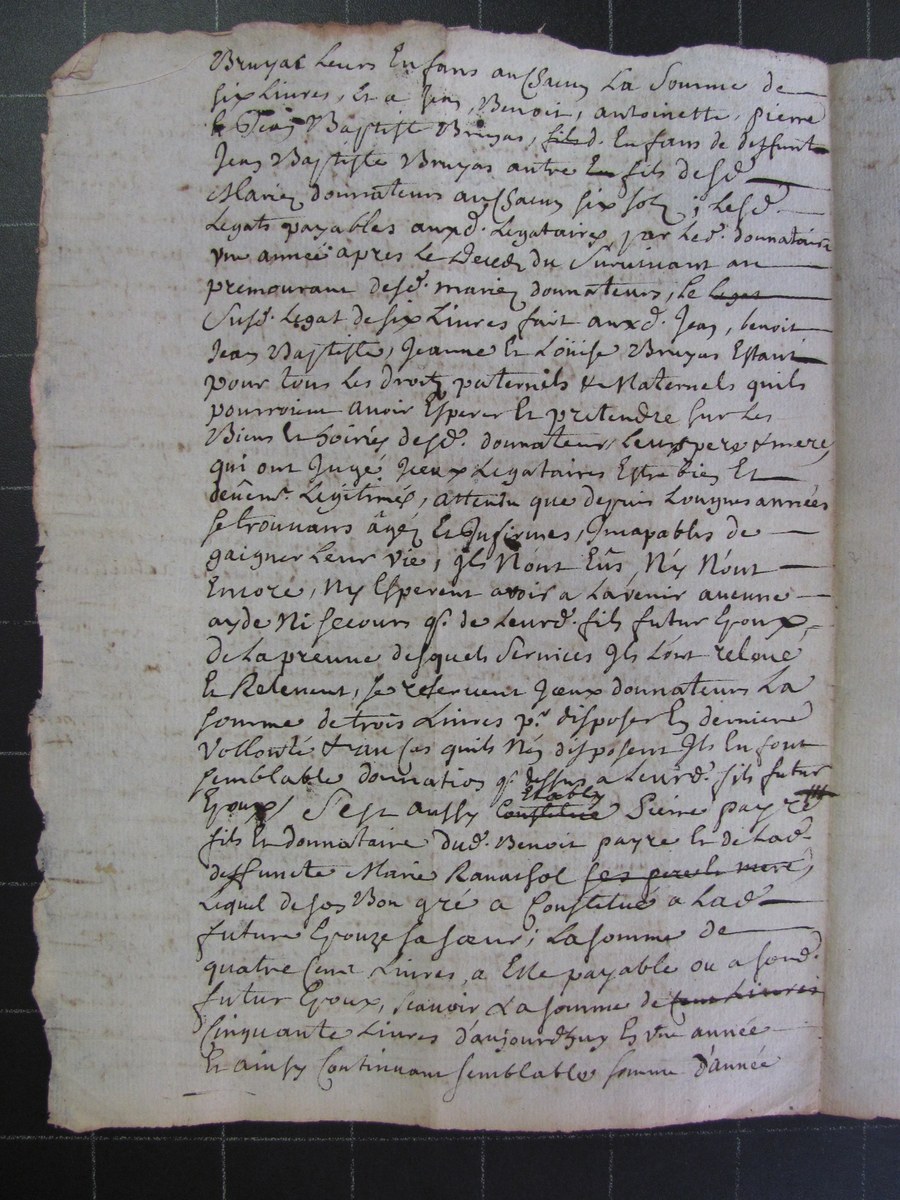 Bruyas Leurs Enfans aux chacun La Somme de
six Livres, Et a Jean, Benoit, antoinette, pierre
& Jean Baptiste Bruyas, filsd. Enfans de deffunt
Jean Baptiste Bruyas autre En fils desd.
Mariez donnateurs aux chacun six solz ; Lesd.
Legats payables auxd. Legataires par Led. donnataire
une année apres Le Decedz du Survivant au
premourant desd. mariez donnateurs, Le Legat
Susd. Legat de six Livres fait auxd. Jean, benoit
Jean Baptiste, Jeanne Et Loüise Bruyas Estant
pour tous Les droitz paternels & Maternels quils
pourroient avoir Esperer Et pretendre sur Les
Biens Et hoiries desd. donnateurs Leurs pere & mere,
qui ont Jugé Jceux Legataires Estre bien Et
deüemt. Legitimés, attendu que depuis Longues années
se trouvans âgéz Et Jnfirmes, Jncapables de
gaigner Leur vie, Jls N'ont Eüs, Ny N'ont
Encore, Ny Esperent avoir a Lavenir aucune
ayde Ni secours q. de Leurd. fils futur Epoux,
de La preuve desquels Services Jls L'ont releué
Et Relevent, se reservent Jceux donnateurs La
somme de trois Livres pr. disposer En derniere
Vollonté & au Cas quils N'en disposent Jls En font
semblable donnation q. dessus a Leurd. fils futur
Epoux / Sest aussy Constitué Etably Pierre payre
fils Et donnataire dud. Benoit payre Et de Lad.
deffuncte Marie Ravachol ses pere & mere,
Lequel de son Bon gré a Constitué a Lad.
future Epouze sa sœur ; La somme de
quatre Cent Livres, a Elle payable ou a sond.
futur Epoux, scavoir La somme de Cent Livres
Cinquante Livres d'aujourdhuy En une année
Et ainsy Continuant semblable somme d'année